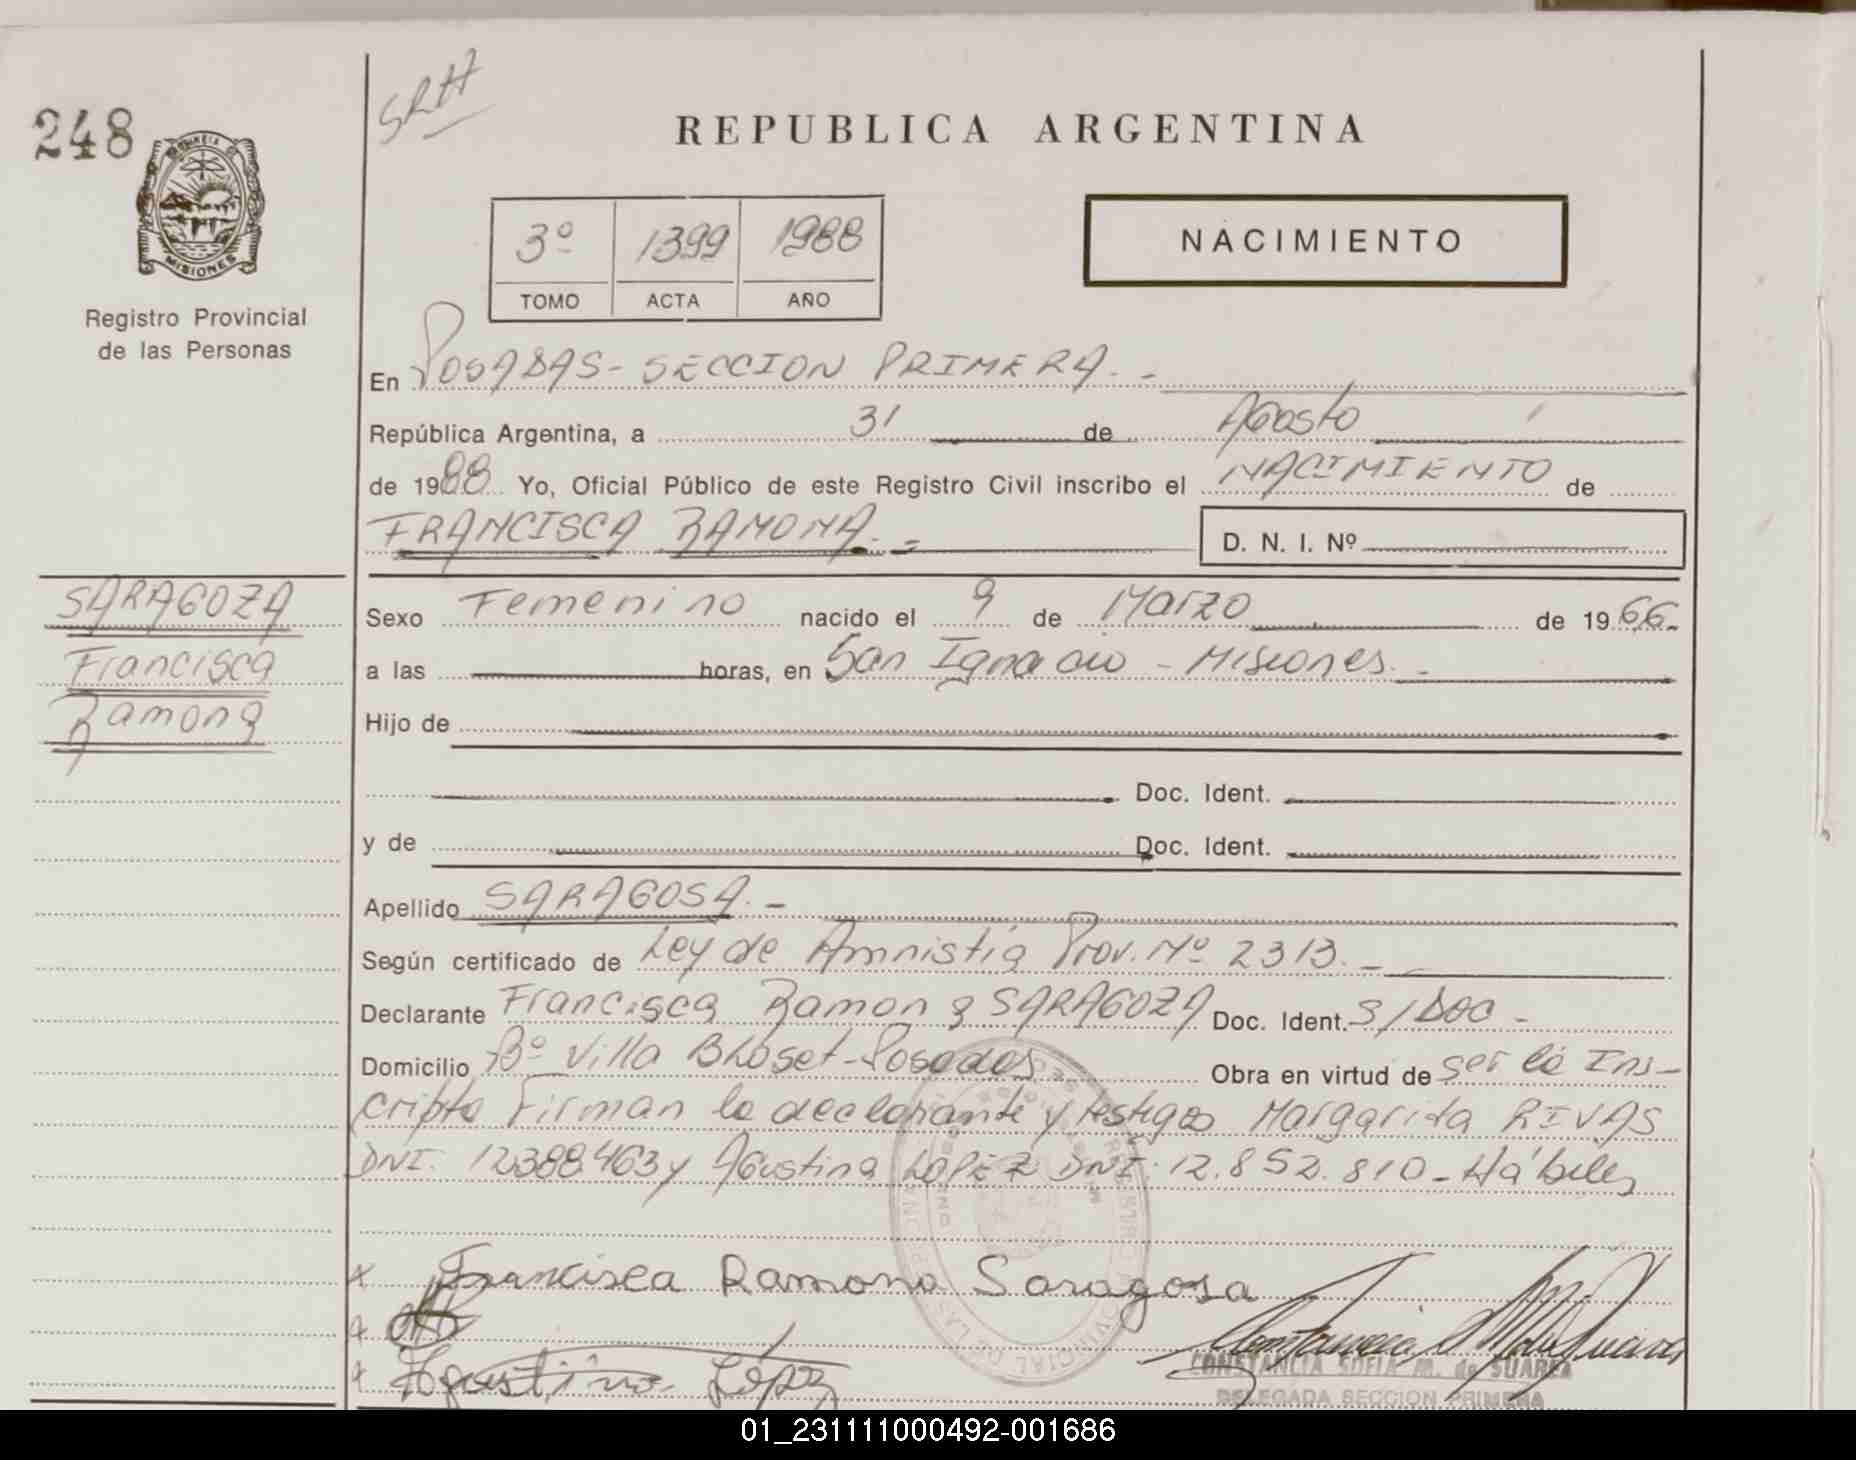 SRH
248
REPUBLICA ARGENTINA
MISIONES
Registro Provincial
de las Personas
3º 1399 1988
TOMO ACTA AÑO
NACIMIENTO
En POSADAS - SECCION PRIMERA. -
República Argentina, a 31 de Agosto
de 1988 Yo, Oficial Público de este Registro Civil inscribo el NACIMIENTO de
FRANCISCA RAMONA. =
D. N. I. Nº
SARAGOZA
Francisca
Ramona
Sexo Femenino nacido el 9 de Marzo de 1966.
a las horas, en San Ignacio - Misiones. -
Hijo de
Doc. Ident.
y de Doc. Ident.
Apellido SARAGOSA. -
Según certificado de Ley de Amnistia Prov. Nº 2313. -
Declarante Francisca Ramona SARAGOZA Doc. Ident. S/Doc -
Domicilio Bº Villa Bloset - Posadas Obra en virtud de ser la Ins-
cripta Firman la declarante y testigos Margarita RIVAS
DNI. 12388463 y Agustina LOPEZ DNI: 12.852.810 - Hábiles
x Francisca Ramona Saragosa
x
x Agustina López
CONSTANCIA SOFIA M. de SUAREZ
DELEGADA SECCION PRIMERA
01_231111000492-001686